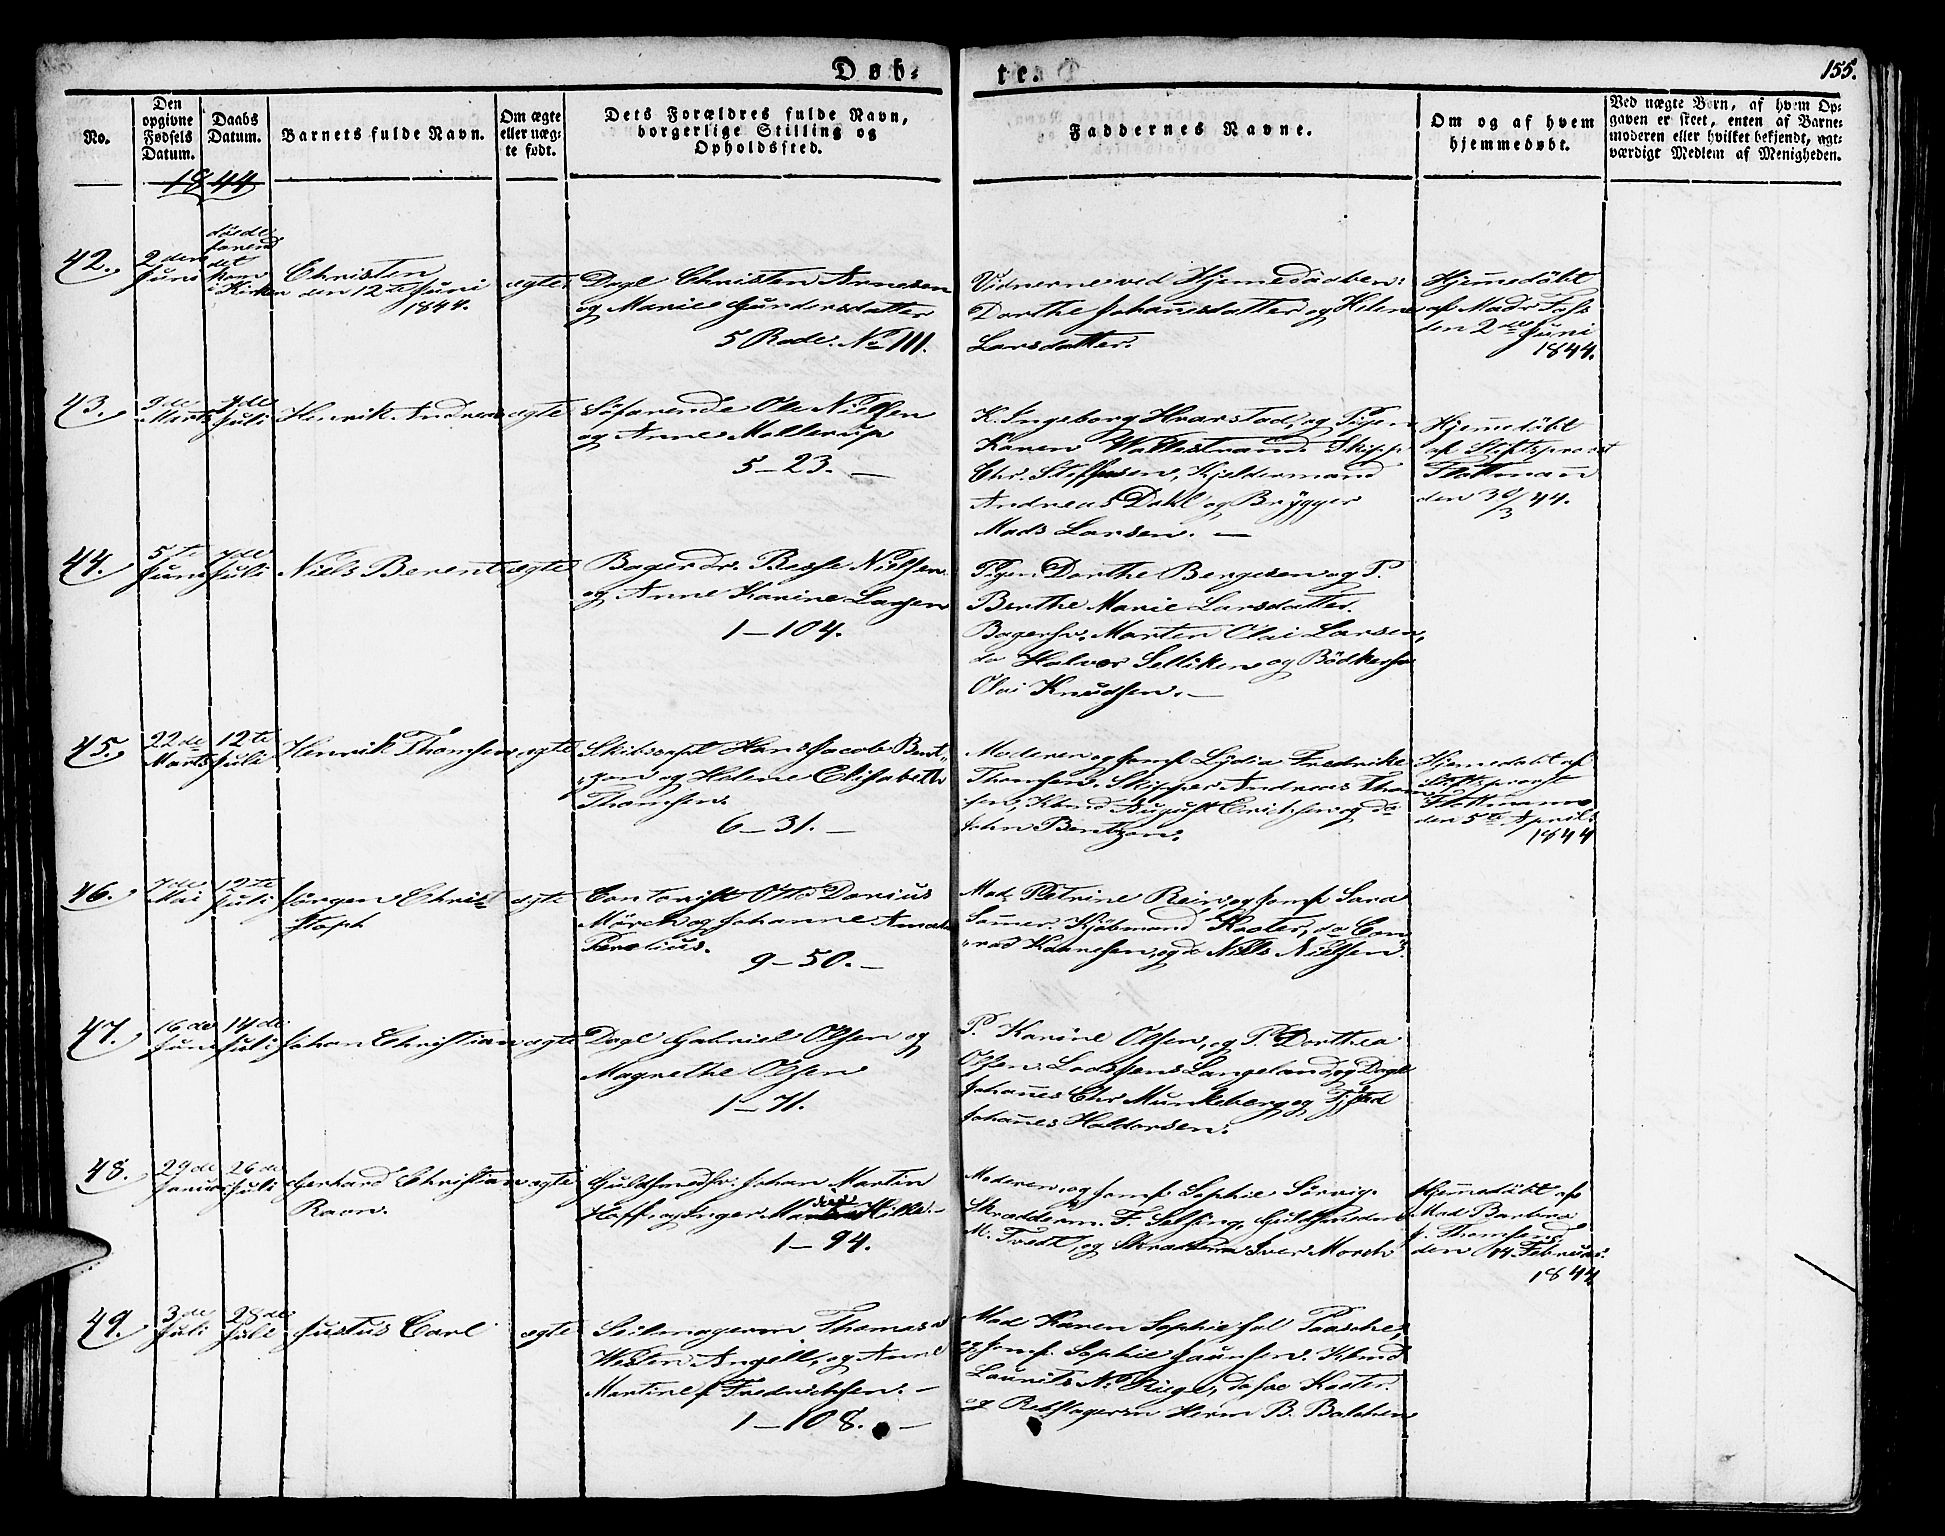 Døb-
te.
155.
No.
Den opgivne Fødsels Datum.
Daabs Datum.
Barnets fulde Navn.
Om ægte eller uæg-te født.
Dets Forældres fulde Navn, borgerlige Stilling og Opholdssted.
Faddernes Navne.
Om og af hvem hjemmedøbt.
Ved uægte Børn, af hvem Op-gaven er skeet, enten af Barne-moderen eller hvilket bekjendt, agt-værdigt Medlem af Menigheden.
1844
42.
2den Juni
døde forend det kom i Kirken
Christen
den 12te Juni
1844.
ægte
Dagl Christen Arnesen
og Marie Gundersdatter
5 Rode. No 111.
Vidnerne ved Hjemedaaben:
Dorthe Johannesdatter og Helene
Larsdatter.
Hjemedöbt
af Mad: Foss
den 2de Juni
1844.
43.
9de Marts
7de Juli
Henrik Andreas
ægte
Söfarende Ole Nielsen
og Anne Mollerup
5 - 23. -
K. Ingeborg Hvarstad, og Pigen
Karen Wallestrand. Skipp.
Chr. Steffensen, Kjeldermand
Andreas Dahl og Brygger
Mads Larsen. -
Hjemedöbt
af Stiftsprovst
Flottmann
den 30/3 44.
44.
5te Juni
7de Juli
Niels Berent
ægte
Bagerdr. Nielsen
og Anne Karine Larsen
1 - 104.
Pigen Dorthe Bergesen og P.
Berthe Marie Larsdatter.
Bagersv. Marten Olai Larsen,
do Halvor Selliken og Bödkersv
Olai Knudsen. -
45.
22de Marts
12te Juli
Henrik Thomsen
ægte
Skibscapt Hans Jacob Bent-
zon og Helene Elisabeth
Thomsen.
6 - 31. -
Moderen og Jomf Lydia Fredrike
Thomsen. Skipper Andreas Thom
sen, Kbmd August Erichsen og do
John Bentzon.
Hjemedöbt af
Stiftsprovst
Flottmann
den 5te April
1844
46.
7de Mai
12te Juli
Jörgen Chris-
stoph
ægte
Contorist Otto Darius
Mörch og Johanne Amalia
9 - 50. -
Mad Petrine Rein, og Jomf Sara
Sömer. Kjöbmand Koster, do Con
rad Kaarsen, og do Niels Nielsen.
47.
16de Juni
14de Juli
Johan Christian
ægte
Dagl Gabriel Olsen og
Magrethe Olsen
1 - 71.
P. Karine Olsen, og P. Dorthea
Olsen. Langeland, og Dagl
Johannes Chr Munkeberg og
Johannes Haldorsen.
48.
29de Januar
26de Juli
Gerhard Christian
Ravn.
ægte
Guldsmedsv. Johan Martin
Hoff og Inger Hille. -
1 - 94.
Moderen, og Jomf Sophie Sörvig.
Skrædderm. F. Selsing, Guldsmedm
M. Tvedt, og Skrædderm Iver Morch
Hjemedöbt af
Mad Barbra
J. Thomsen
den 14 Februar
1844
49.
3de Juli
28de Juli
Justus Carl
ægte
Seilmagerm. Thomas v
Westen Angell, og Anne
Martine f Fredrichsen. -
1 - 108. -
Mad Karen Sophie Sal Paasche,
og Jomf. Sophie Jaunsen. Kbmd
Laurits N. Riege, do Koster.
og Rebslagerm Herm B. Balchen